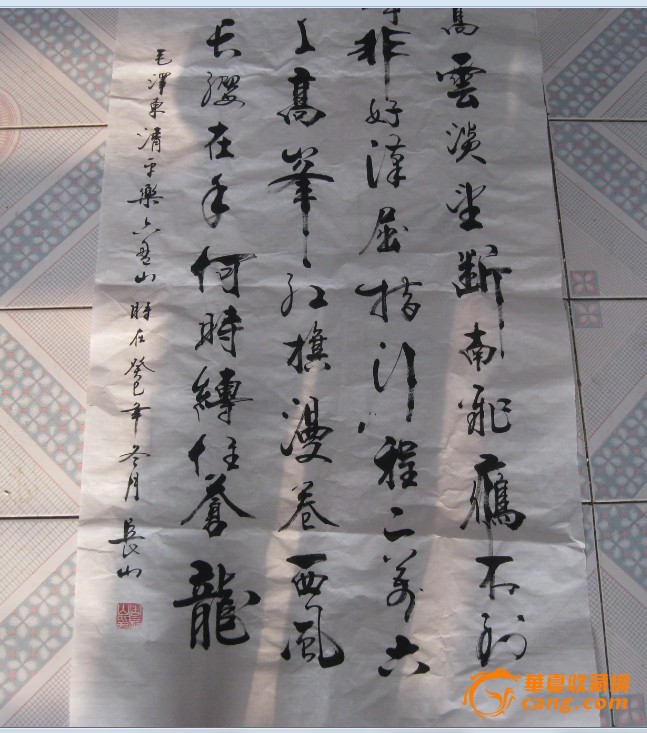 高雲淡望斷南飛鴈不到
非好漢屈指行程二萬六
上高峯红旗漫卷西風
长缨在手何時縛住蒼龍
毛澤東清平樂六盘山 時在癸巳年冬月 長山
華夏收藏網
cang.com